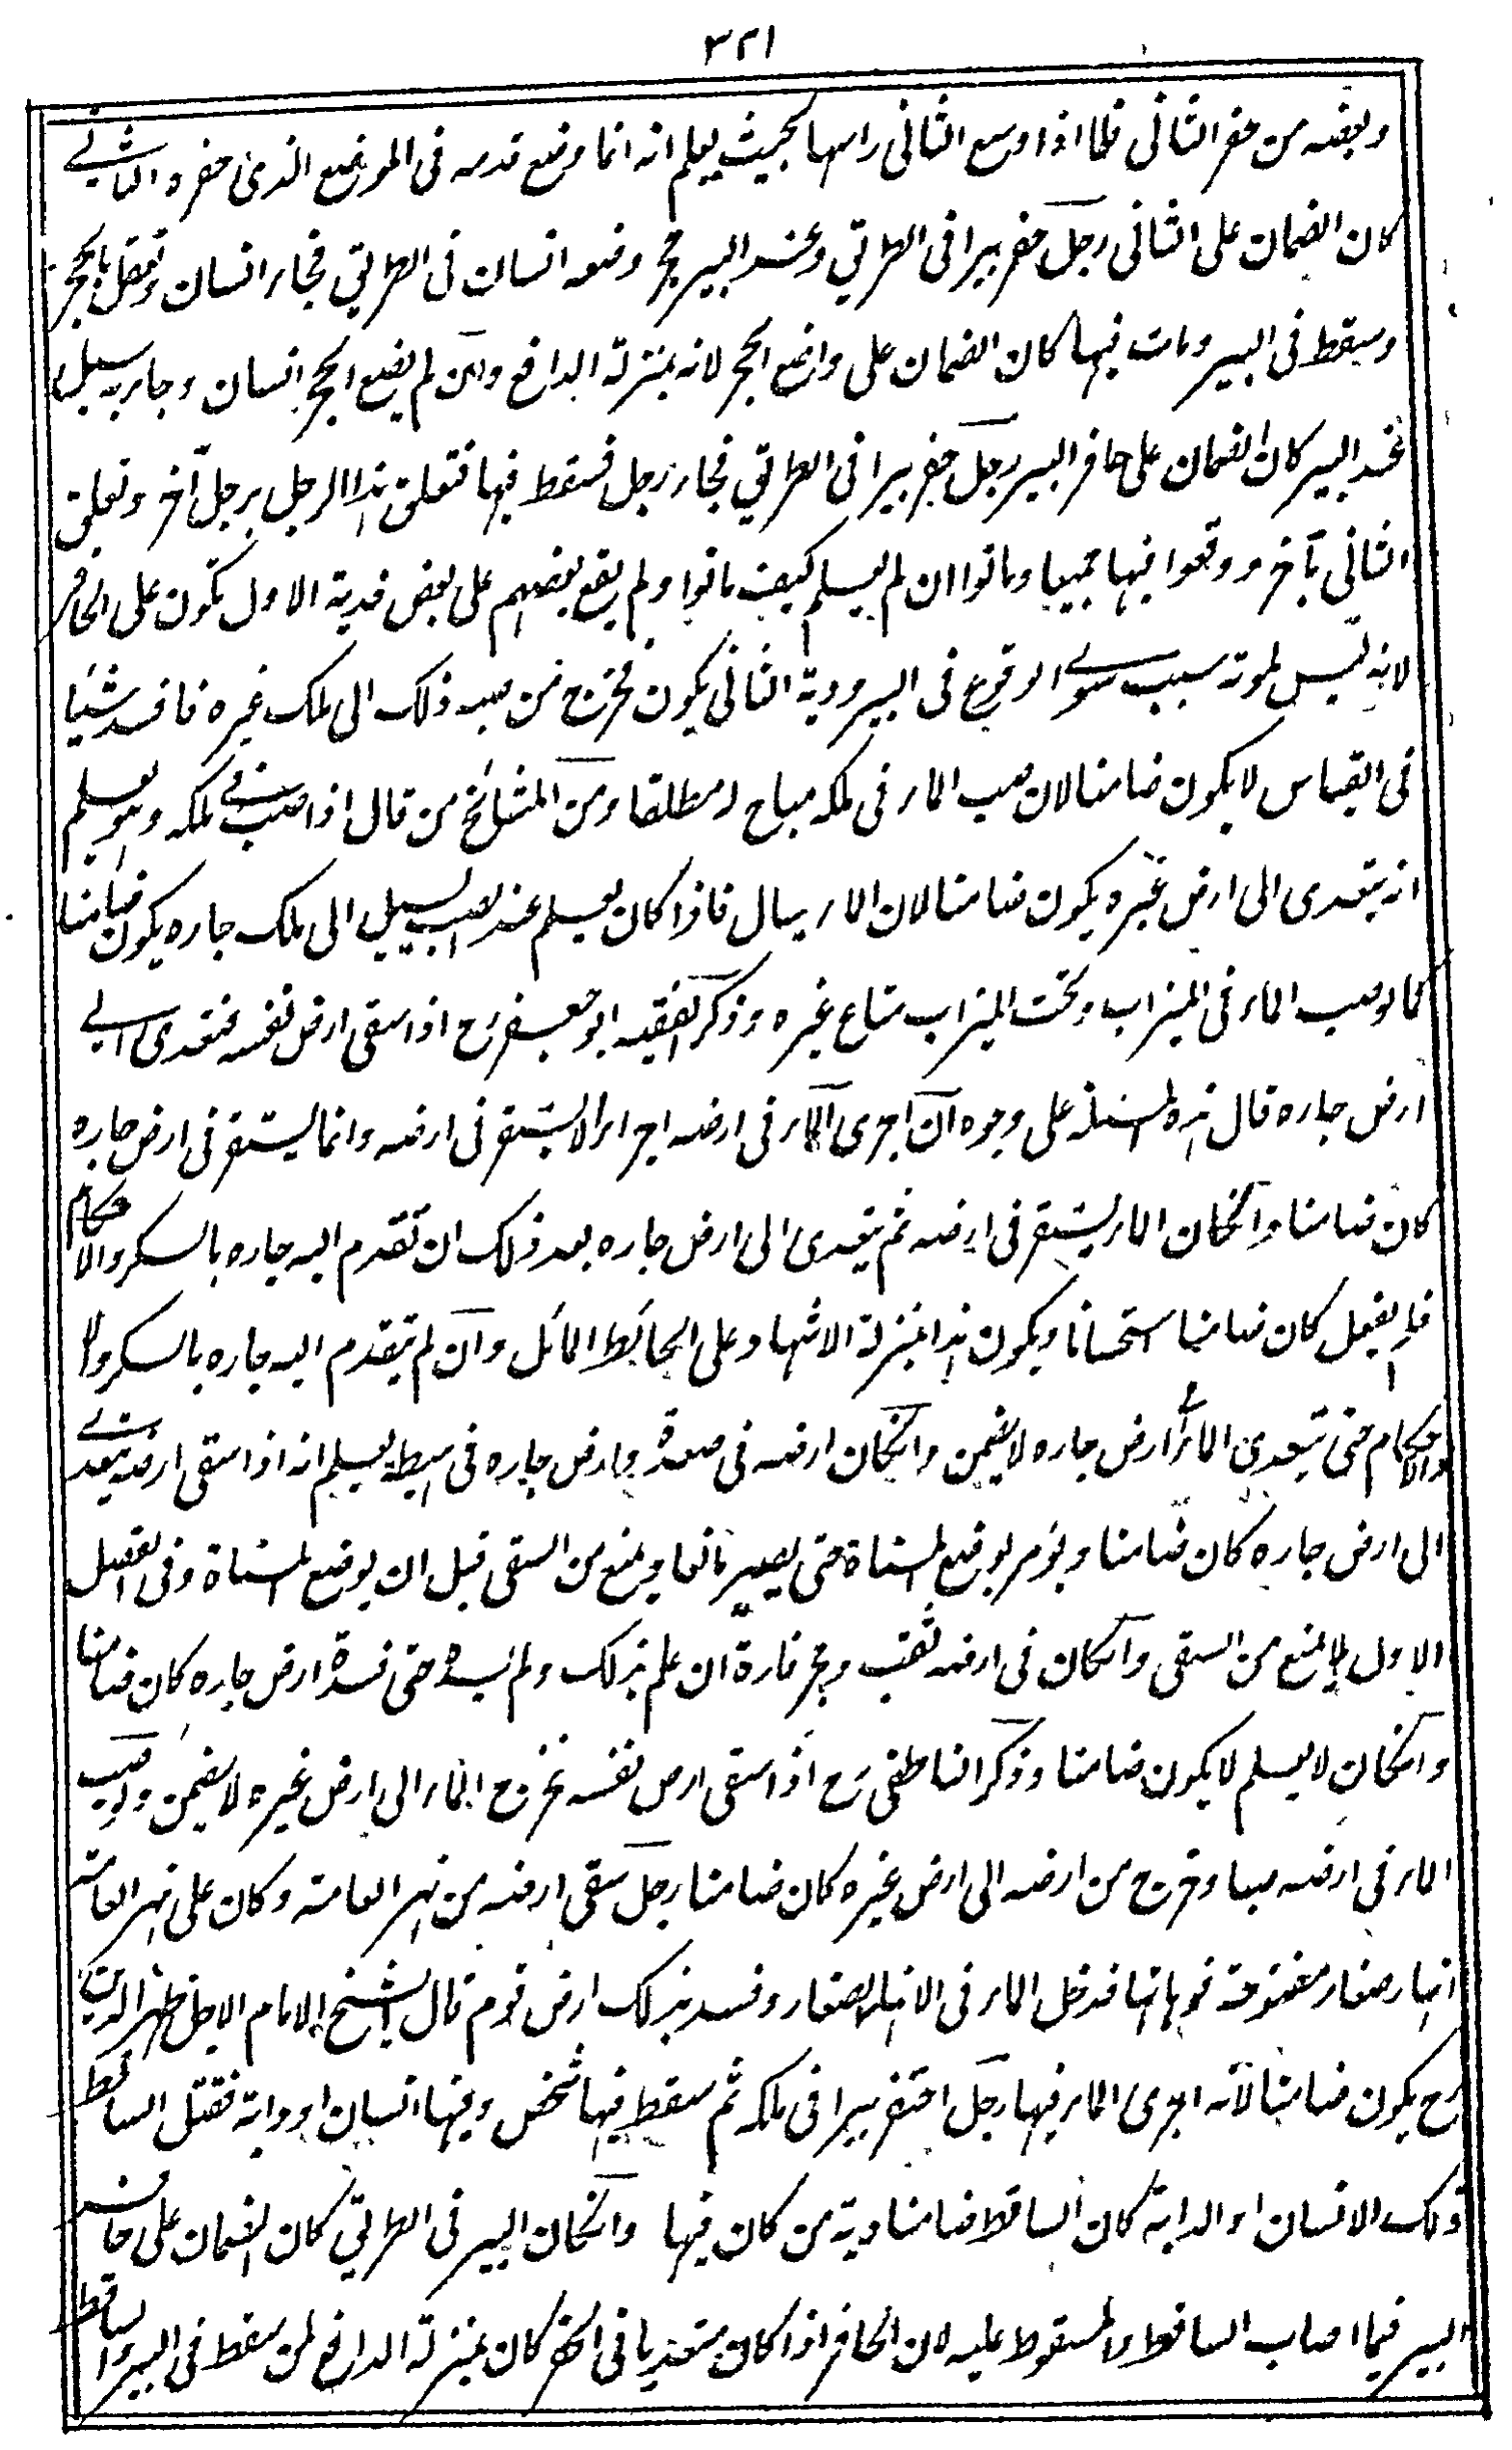 ٣٢١
وبعضه من حفر الثانى فاما اذا وسع الثانى راسها بحيث يعلم انه انما وضع قدمه فى الموضع الذى حفره الثانى
كان الضمان على الثانى رجل حفر بيرا فى الطريق وعند البير حجر وضعه انسان فى الطريق فجاء انسان وتعقل بالحجر
وسقط فى البير ومات فيها كان الضمان على واضع الحجر لانه بمنزلة الدافع وان لم يضع الحجر انسان وجاء به سيل
عند البير كان الضمان على حافر البير رجل حفر بيرا فى الطريق فجاء رجل فسقط فيها فتعلق هذا الرجل برجل آخر وتعلق
الثانى بآخر ووقعوا فيها جميعا وماتوا ان لم يعلم كيف ماتوا ولم يقع بعضهم على بعض فدية الاول تكون على الحافر
لانه ليس لموته سبب سوى الوقوع فى البير ودية الثانى يكون فخرج من صبه ذلك الى ملك غيره فافسد شيئا
فى القياس لا يكون ضامنا لان صب الماء فى ملكه مباح له مطلقا ومن المشائخ من قال اذا صب فى ملكه وهو يعلم
انه يتعدى الى ارض غيره يكون ضامنا لان الماء سيال فاذا كان يعلم عند الصب انه يسيل الى ملك جاره يكون ضامنا
كما لو صب الماء فى الميزاب وتحت الميزاب متاع غيره وذكر الفقيه ابو جعفر رح اذا سقى ارض نفسه فتعدى الى
ارض جاره قال هذه المسئلة على وجوه ان اجرى الماء فى ارضه اجراء لا يستقر فى ارضه وانما يستقر فى ارض جاره
كان ضامنا وانكان الماء يستقر فى ارضه ثم يتعدى الى ارض جاره بعد ذلك ان تقدم اليه جاره بالسكر والاحكام
فلم يفعل كان ضامنا استحسانا ويكون هذا بمنزلة الاشهاد على الحائط المائل وان لم يتقدم اليه جاره بالسكر
والاحكام حتى تعدى الماء الى ارض جاره لا يضمن وانكان ارضه فى صعدة وارض جاره فى هبطة يعلم انه اذا سقى ارضه يتعدى
الى ارض جاره كان ضامنا ويؤمر بوضع المسناة حتى يصير مانعا ويمنع من السقى قبل ان يوضع المسناة وفى الفصل
الاول لا يمنع من السقى وانكان فى ارضه ثقب وجحر فارة ان علم بذلك ولم يسده حتى فسدت ارض جاره كان ضامنا
وانكان لا يعلم لا يكون ضامنا وذكر الناطفى رح اذا سقى ارض نفسه فخرج الماء الى ارض غيره لا يضمن ولو صب
الماء فى ارضه صبا وخرج من ارضه الى ارض غيره كان ضامنا رجل سقى ارضه من نهر العامة وكان على نهر العامة
انهار صغار مفتوحة فوهاتها فدخل الماء فى الانهار الصغار وفسد بذلك ارض قوم قال الشيخ الامام الاجل ظهير الدين
رح يكون ضامنا لانه اجرى الماء فيها رجل احتفر بيرا فى ملكه ثم سقط فيها شخص وفيها انسان او دابة فقتل الساقط
ذلك الانسان او الدابة كان الساقط ضامنا دية من كان فيها وانكان البير فى الطريق كان الضمان على حافر
البير فيما اصاب الساقط والمسقوط عليه لان الحافر اذا كان متعديا فى الحفر كان بمنزلة الدافع لمن سقط فى البير والساقط